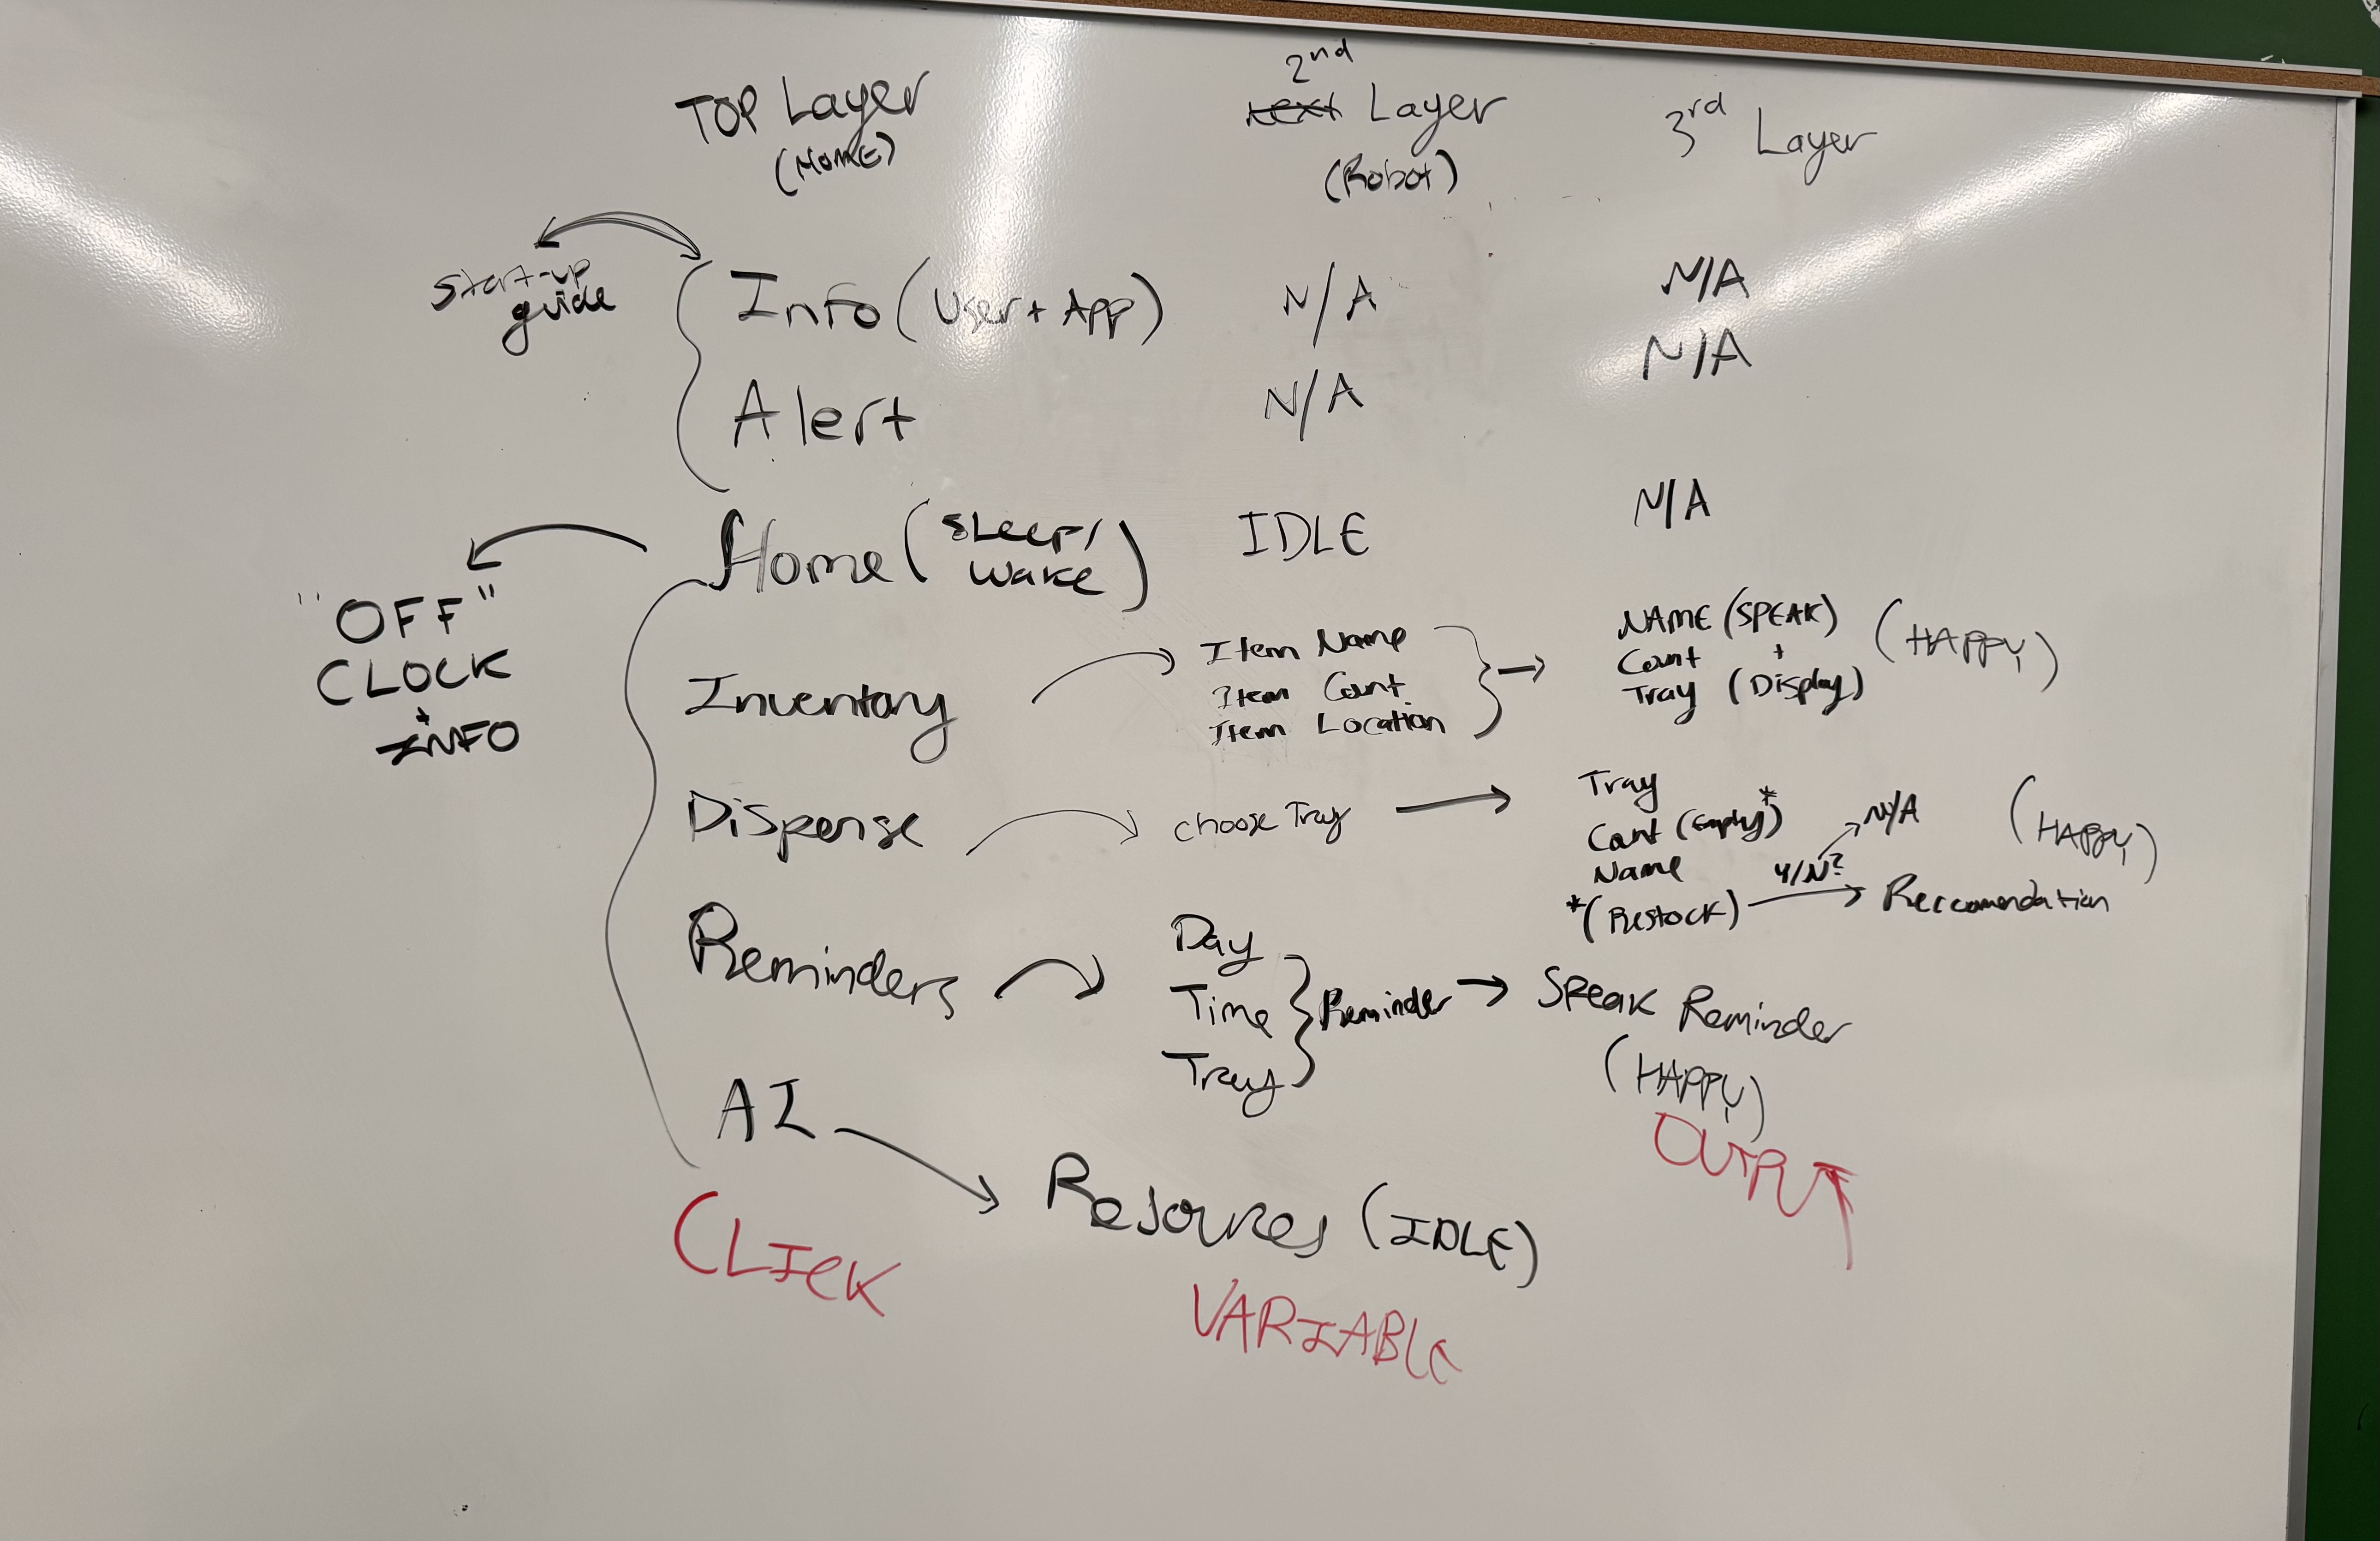 TOP Layer
(HOME)
2nd
Layer
(Robot)
3rd Layer
start-up
guide
Info (User + App)
N/A
N/A
Alert
N/A
N/A
Home (sleep/
wake)
IDLE
N/A
"OFF"
CLOCK
+
INFO
Inventory
Item Name
Item Count
Item Location
NAME (SPEAK)
Count +
Tray (Display)
(HAPPY)
Dispense
choose Tray
Tray
Count (Empty)*
Name
*(Restock)
Y/N?
N/A
Reccomendation
(HAPPY)
Reminders
Day
Time
Tray
Reminder
Speak Reminder
(HAPPY)
AI
Resources (IDLE)
CLICK
VARIABLE
OUTPUT